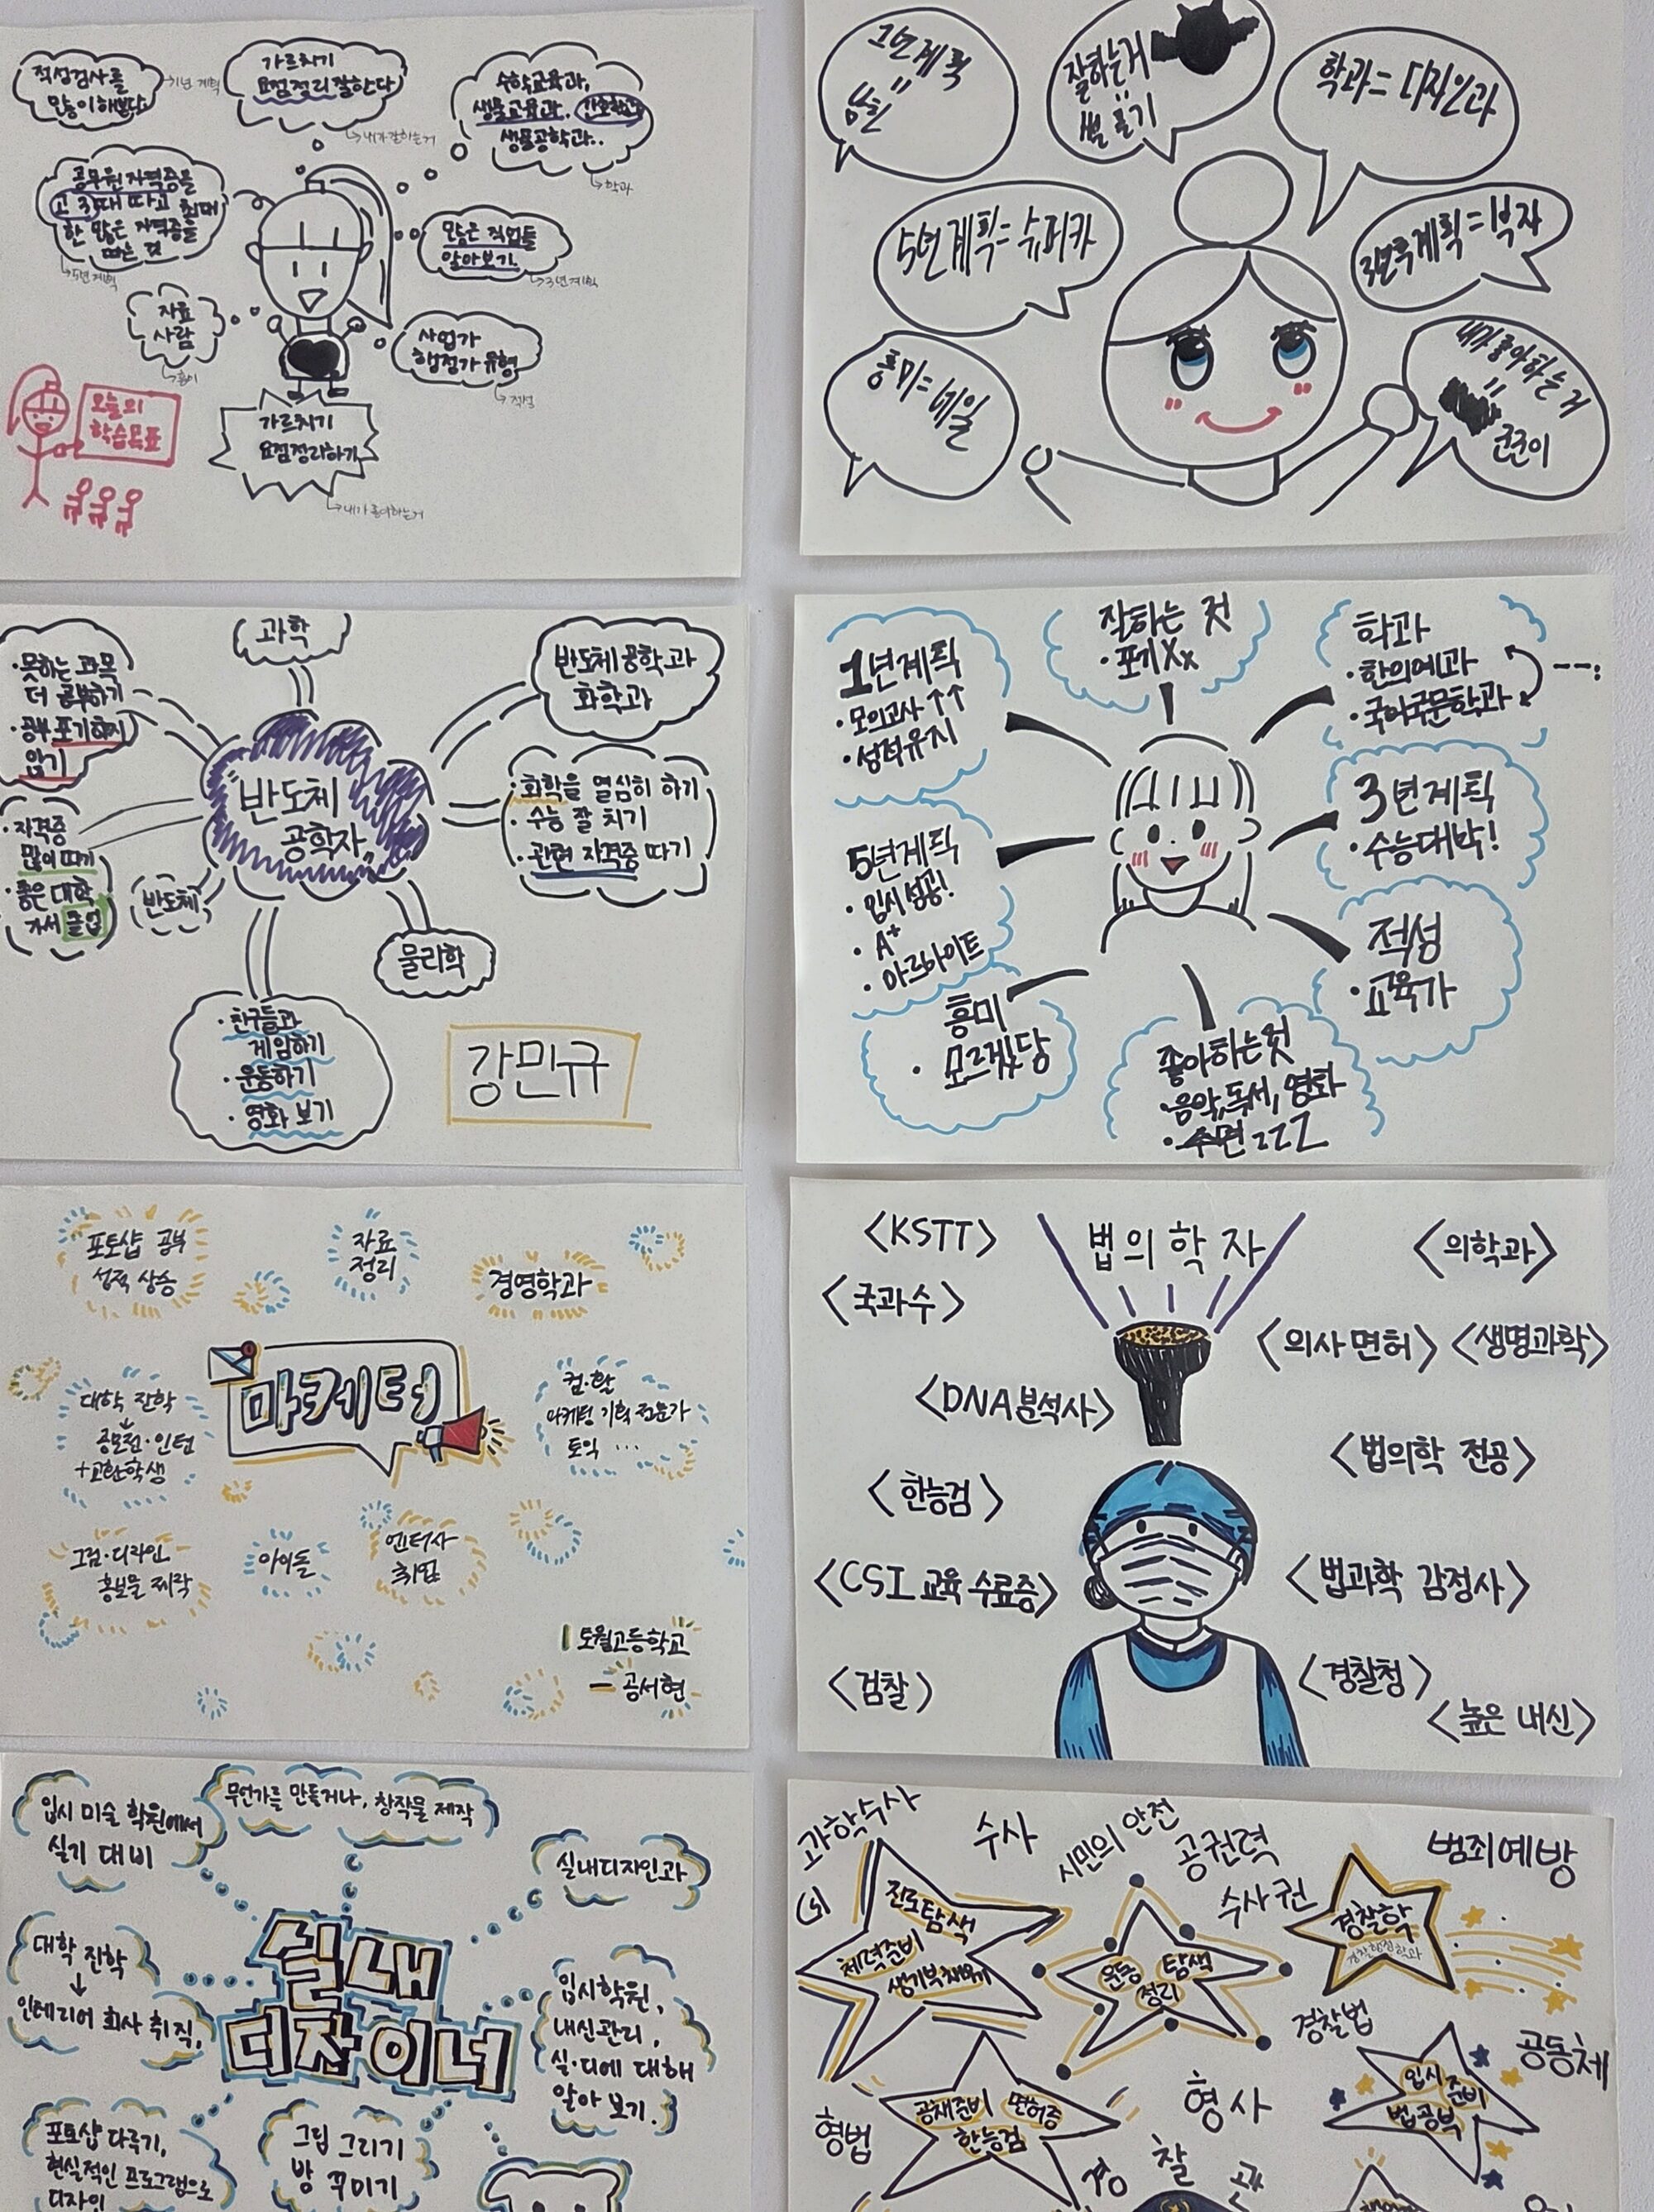 적성검사를
많이 해본다
1년 계획
가르치기
요점정리 잘한다
내가 잘하는거
수학교육과,
생물교육과, 간호학과
생물공학과..
학과
공무원 자격증을
고3때 따고 최대
한 많은 자격증을
따는 것
5년 계획
많은 직업들
알아보기.
3년 계획
자료
사람
흥미
사업가
행정가 유형
적성
오늘의
학습목표
가르치기
요점정리하기
내가 좋아하는거
1년계획
잘하는거
학과= 디자인과
5년계획=슈퍼카
3년후계획=부자
흥미=네일
내가 좋아하는거
군군이
과학
·못하는 과목
더 공부하기
·공부 포기하지
않기
반도체공학과
화학과
"반도체
공학자"
·화학을 열심히 하기
·수능 잘 치기
·관련 자격증 따기
·자격증
많이 따기
·좋은 대학
가서 졸업
반도체
물리학
·친구들과
게임하기
·운동하기
·영화 보기
강민규
1년계획
·모의고사↑↑
·성적유지
잘하는 것
·포기Xx
학과
·한의예과
·국어국문학과
3년계획
·수능대박!
5년계획
·입시성공!
·A+
·아르바이트
적성
·교육가
흥미
·모르겠당
좋아하는것
·음악,독서,영화
·수면zzZ
포토샵 공부
성적 상승
자료
정리
경영학과
마케터
대학 진학
↓
공모전·인턴
+교환학생
컴·활
마케팅 기획 전문가
토익 ...
그림·디자인
홍보물 제작
아이돌
엔터사
취업
토월고등학교
- 공서현
<KSTT>
법의학자
<의학과>
<국과수>
<의사면허> <생명과학>
<DNA분석사>
<법의학 전공>
<한능검>
<CSI 교육 수료증>
<법과학 감정사>
<검찰>
<경찰청>
<높은 내신>
입시 미술 학원에서
실기 대비
무언가를 만들거나, 창작물 제작
실내디자인과
실내
디자이너
대학 진학
↓
인테리어 회사 취직,
입시학원,
내신관리,
실·디에 대해
알아 보기.
포토샵 다루기,
현실적인 프로그램으로
디자인
그림 그리기
방 꾸미기
과학수사
수사
시민의 안전
공권력
수사권
범죄예방
진로탐색
체력준비
생기부채우기
운동 탐색
정리
경찰학
경찰행정학과
경찰법
공동체
입시
준비
법공부
공채준비 면허증
한능검
형법
형사
경찰관